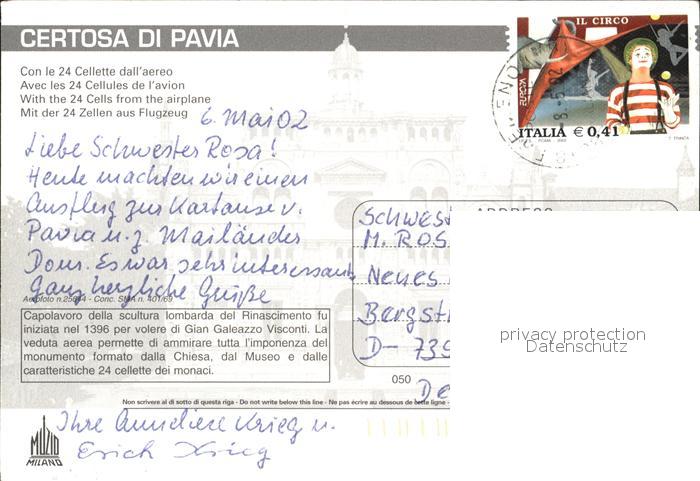 CERTOSA DI PAVIA
Con le 24 Cellette dall'aereo
Avec les 24 Cellules de l'avion
With the 24 Cells from the airplane
Mit der 24 Zellen aus Flugzeug
IL CIRCO
EUROPA
ITALIA € 0,41
6. Mai 02
Liebe Schwester Rosa!
Heute machten wir einen
Ausflug zur Kartause v.
Pavia u. z. Mailänder
Dom. Es war sehr interessant
Ganz herzliche Grüße
Aerofoto n. - Conc. SMA n. 401/69
Capolavoro della scultura lombarda del Rinascimento fu
iniziata nel 1396 per volere di Gian Galeazzo Visconti. La
veduta aerea permette di ammirare tutta l'imponenza del
monumento formato dalla Chiesa, dal Museo e dalle
caratteristiche 24 cellette dei monaci.
Schwest
M. ROS
Neues
Bergst
D- 739
050
De
privacy protection
Datenschutz
Non scrivere al di sotto di questa riga - Do not write below this line - Ne pas écrire au dessous de cette ligne -
Ihre Anneliese Krieg u.
Erich Krieg
MUZIO
MILANO